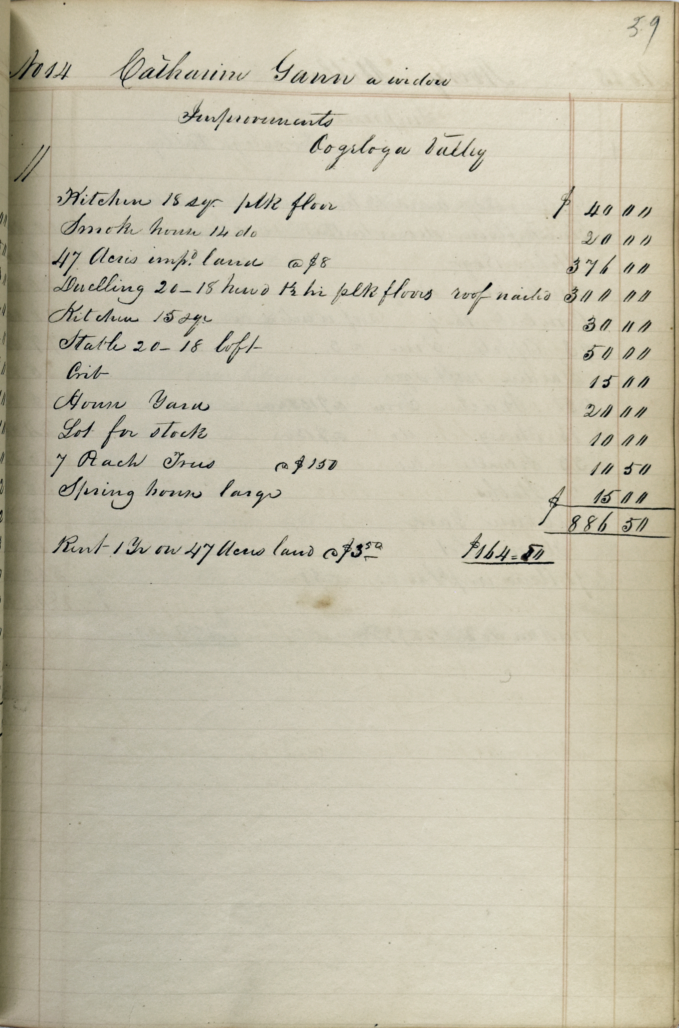 59
No 14 Catharine Gann a widow
Improvements
Oogeloga Valley
11
Kitchen 18 sqr plk floor $ 40 00
Smoke house 14 do 20 00
47 Acres impd. land @ $8 376 00
Dwelling 20-18 hewd plk floors roof nailed 300 00
Kitchen 15 sqr 30 00
Stable 20-18 loft 50 00
Crib 15 00
House Yard 20 00
Lot for stock 10 00
7 Peach Trees @ $1 50 10 50
Spring house large $ 15 00
$ 886 50
Rent 1 Yr on 47 Acres land @ $3 50 $164=50